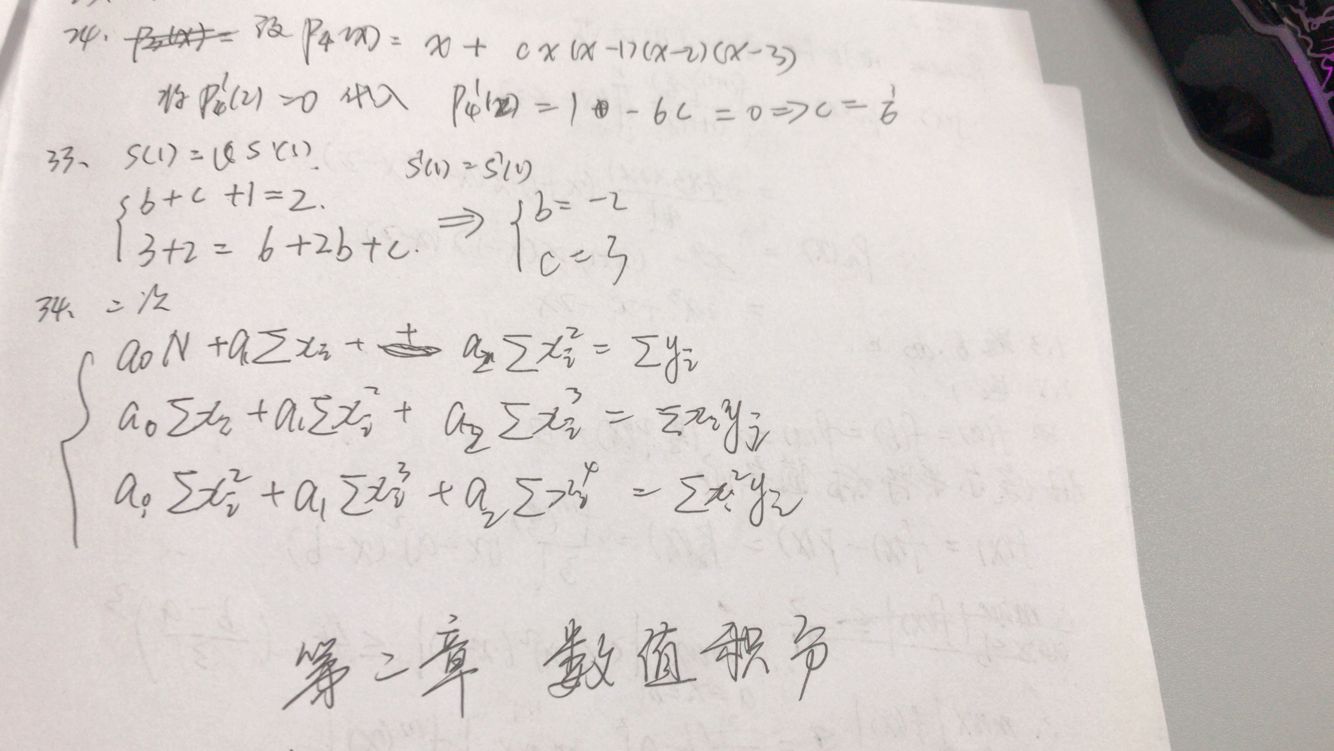 24. 设 P₄(x) = x + cx(x-1)(x-2)(x-3)
将 P₄'(2) = 0 代入 P₄'(2) = 1 - 6c = 0 => c = 1/6
33、 S(1) = S'(1). S'(1) = S'(1)
{ b + c + 1 = 2. => { b = -2
3 + 2 = 6 + 2b + c. c = 3
34、 二次
{ a₀N + a₁∑xᵢ + a₂∑xᵢ² = ∑yᵢ
a₀∑xᵢ + a₁∑xᵢ² + a₂∑xᵢ³ = ∑xᵢyᵢ
a₀∑xᵢ² + a₁∑xᵢ³ + a₂∑xᵢ⁴ = ∑xᵢ²yᵢ
第二章 数值积分